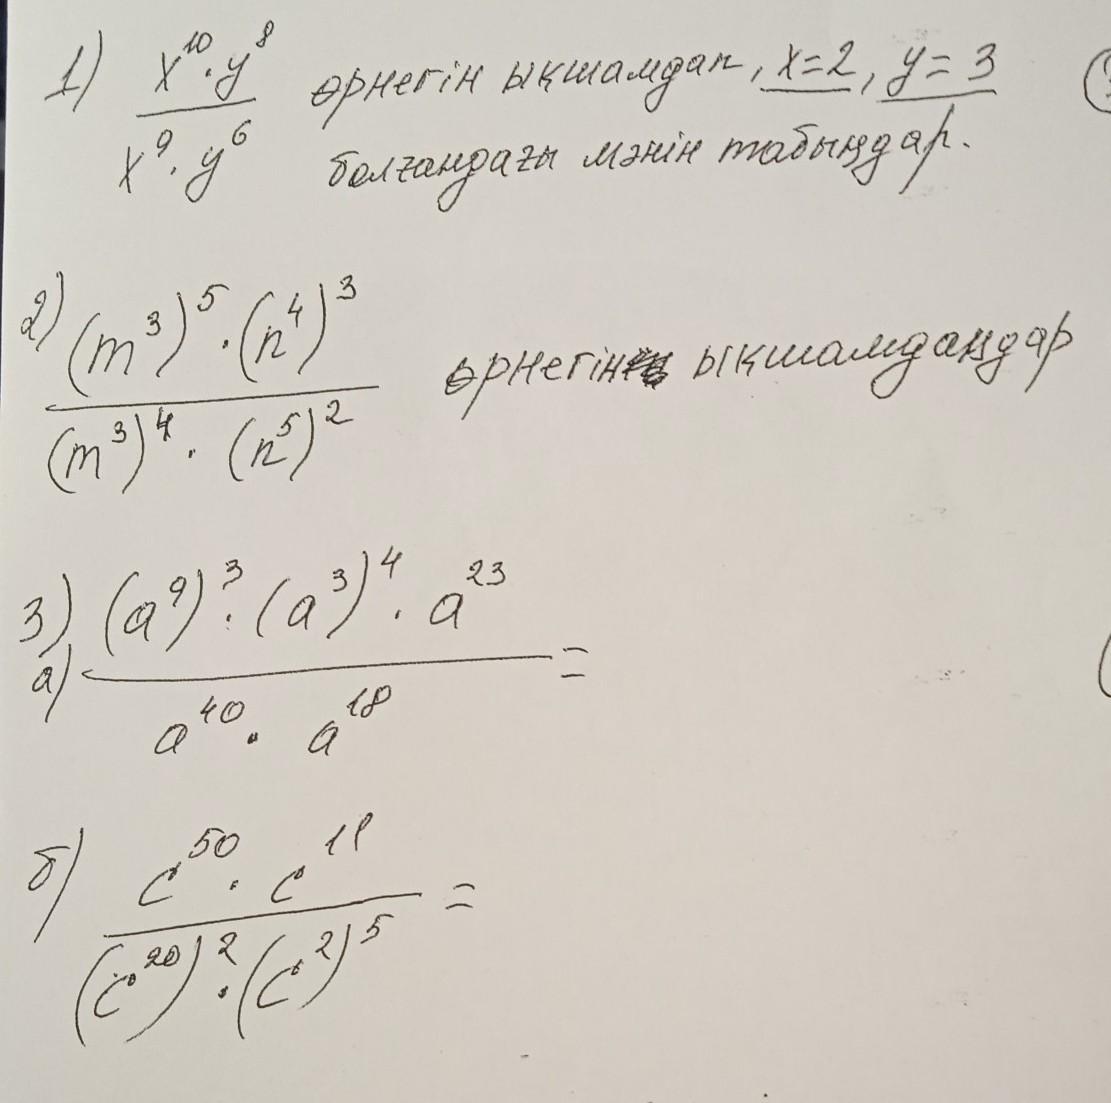 1) x¹⁰·y⁸ / x⁹·y⁶ өрнегін ықшамдап, x=2, y=3
болғандағы мәнін табыңдар.
2) (m³)⁵·(n⁴)³ / (m³)⁴·(n⁵)² өрнегін ықшамдаңдар
3) a) (a⁹)³·(a³)⁴·a²³ / a⁴⁰·a¹⁸ =
б) c⁵⁰·c¹¹ / (c²⁰)²·(c²)⁵ =